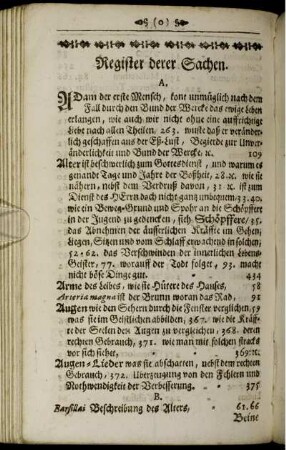 § (o) §
Register derer Sachen.
A.
ADam der erste Mensch, konte unmüglich nach dem
Fall durch den Bund der Wercke das ewige Leben
erlangen, wie auch wir nicht ohne eine auffrichtige
Liebe nach allen Theilen. 263. wuste daß er veränder-
lich geschaffen aus der Eß-Lust, Begierde zur Unver-
änderlichkeit und Bund der Wercke, ꝛc. 109
Alter ist beschwerlich zum Gottesdienst, und warum es
genande Tage und Jahre der Boßheit, 28.ꝛc. wie sie
nähern, nebst dem Verdruß davon, 31 ꝛc. ist zum
Dienst des HErrn doch nicht gantz unbequem. 33.40.
wie ein Beweg-Grund und Spohr an die Schöpffere
in der Jugend zu gedencken, sieh. Schöpffere/ 15.
das Abnehmen der äusserlichen Kräffte im Gehen,
Liegen, Sitzen und vom Schlaff erwachend in solchen,
52.62. das Verschwinden der innerlichen Lebens-
Geister, 77. worauff der Todt folget, 93. macht
nicht böse Dinge gut, 434
Arme des Leibes, wie sie Hütere des Hauses, 58
Arteria magna ist der Brunn woran das Rad, 91
Augen wie den Sehern durch die Fenster verglichen, 59
was sie im Geistlichen abbilden, 367. wie die Kräff-
te der Seelen den Augen zu vergleichen, 368. deren
rechten Gebrauch, 371. wie man mit solchen stracks
vor sich siehet, 369.ꝛc.
Augen-Lieder was sie abschatten, nebst dem rechten
Gebrauch, 372. Uberzeugung von den Fehlern und
Nothwendigkeit der Verbesserung. 375
B.
Barsillai Beschreibung des Alters, 61.66
Beine